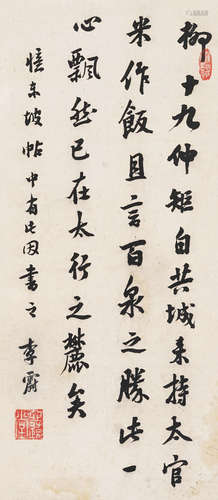 柳十九仲矩自共城来持太官
米作飯且言百泉之勝此一
心飄然已在太行之麓矣
憶东坡帖中有此因書之 李霨